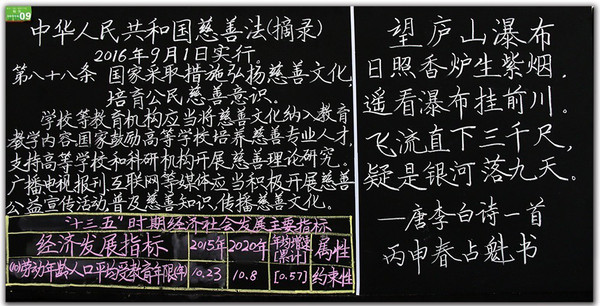 中华人民共和国慈善法(摘录)
2016年9月1日实行。
第八十八条 国家采取措施弘扬慈善文化,
培育公民慈善意识。
学校等教育机构应当将慈善文化纳入教育
教学内容.国家鼓励高等学校培养慈善专业人才,
支持高等学校和科研机构开展慈善理论研究。
广播电视报刊.互联网等媒体应当积极开展慈善
公益宣传活动,普及慈善知识,传播慈善文化。
"十三五"时期经济社会发展主要指标
经济发展指标 2015年 2020年 年均增速[累计] 属性
劳动年龄人口平均受教育年限(年) 10.23 10.8 [0.57] 约束性
望庐山瀑布
日照香炉生紫烟,
遥看瀑布挂前川。
飞流直下三千尺,
疑是银河落九天。
—唐李白诗一首
丙申春占魁书